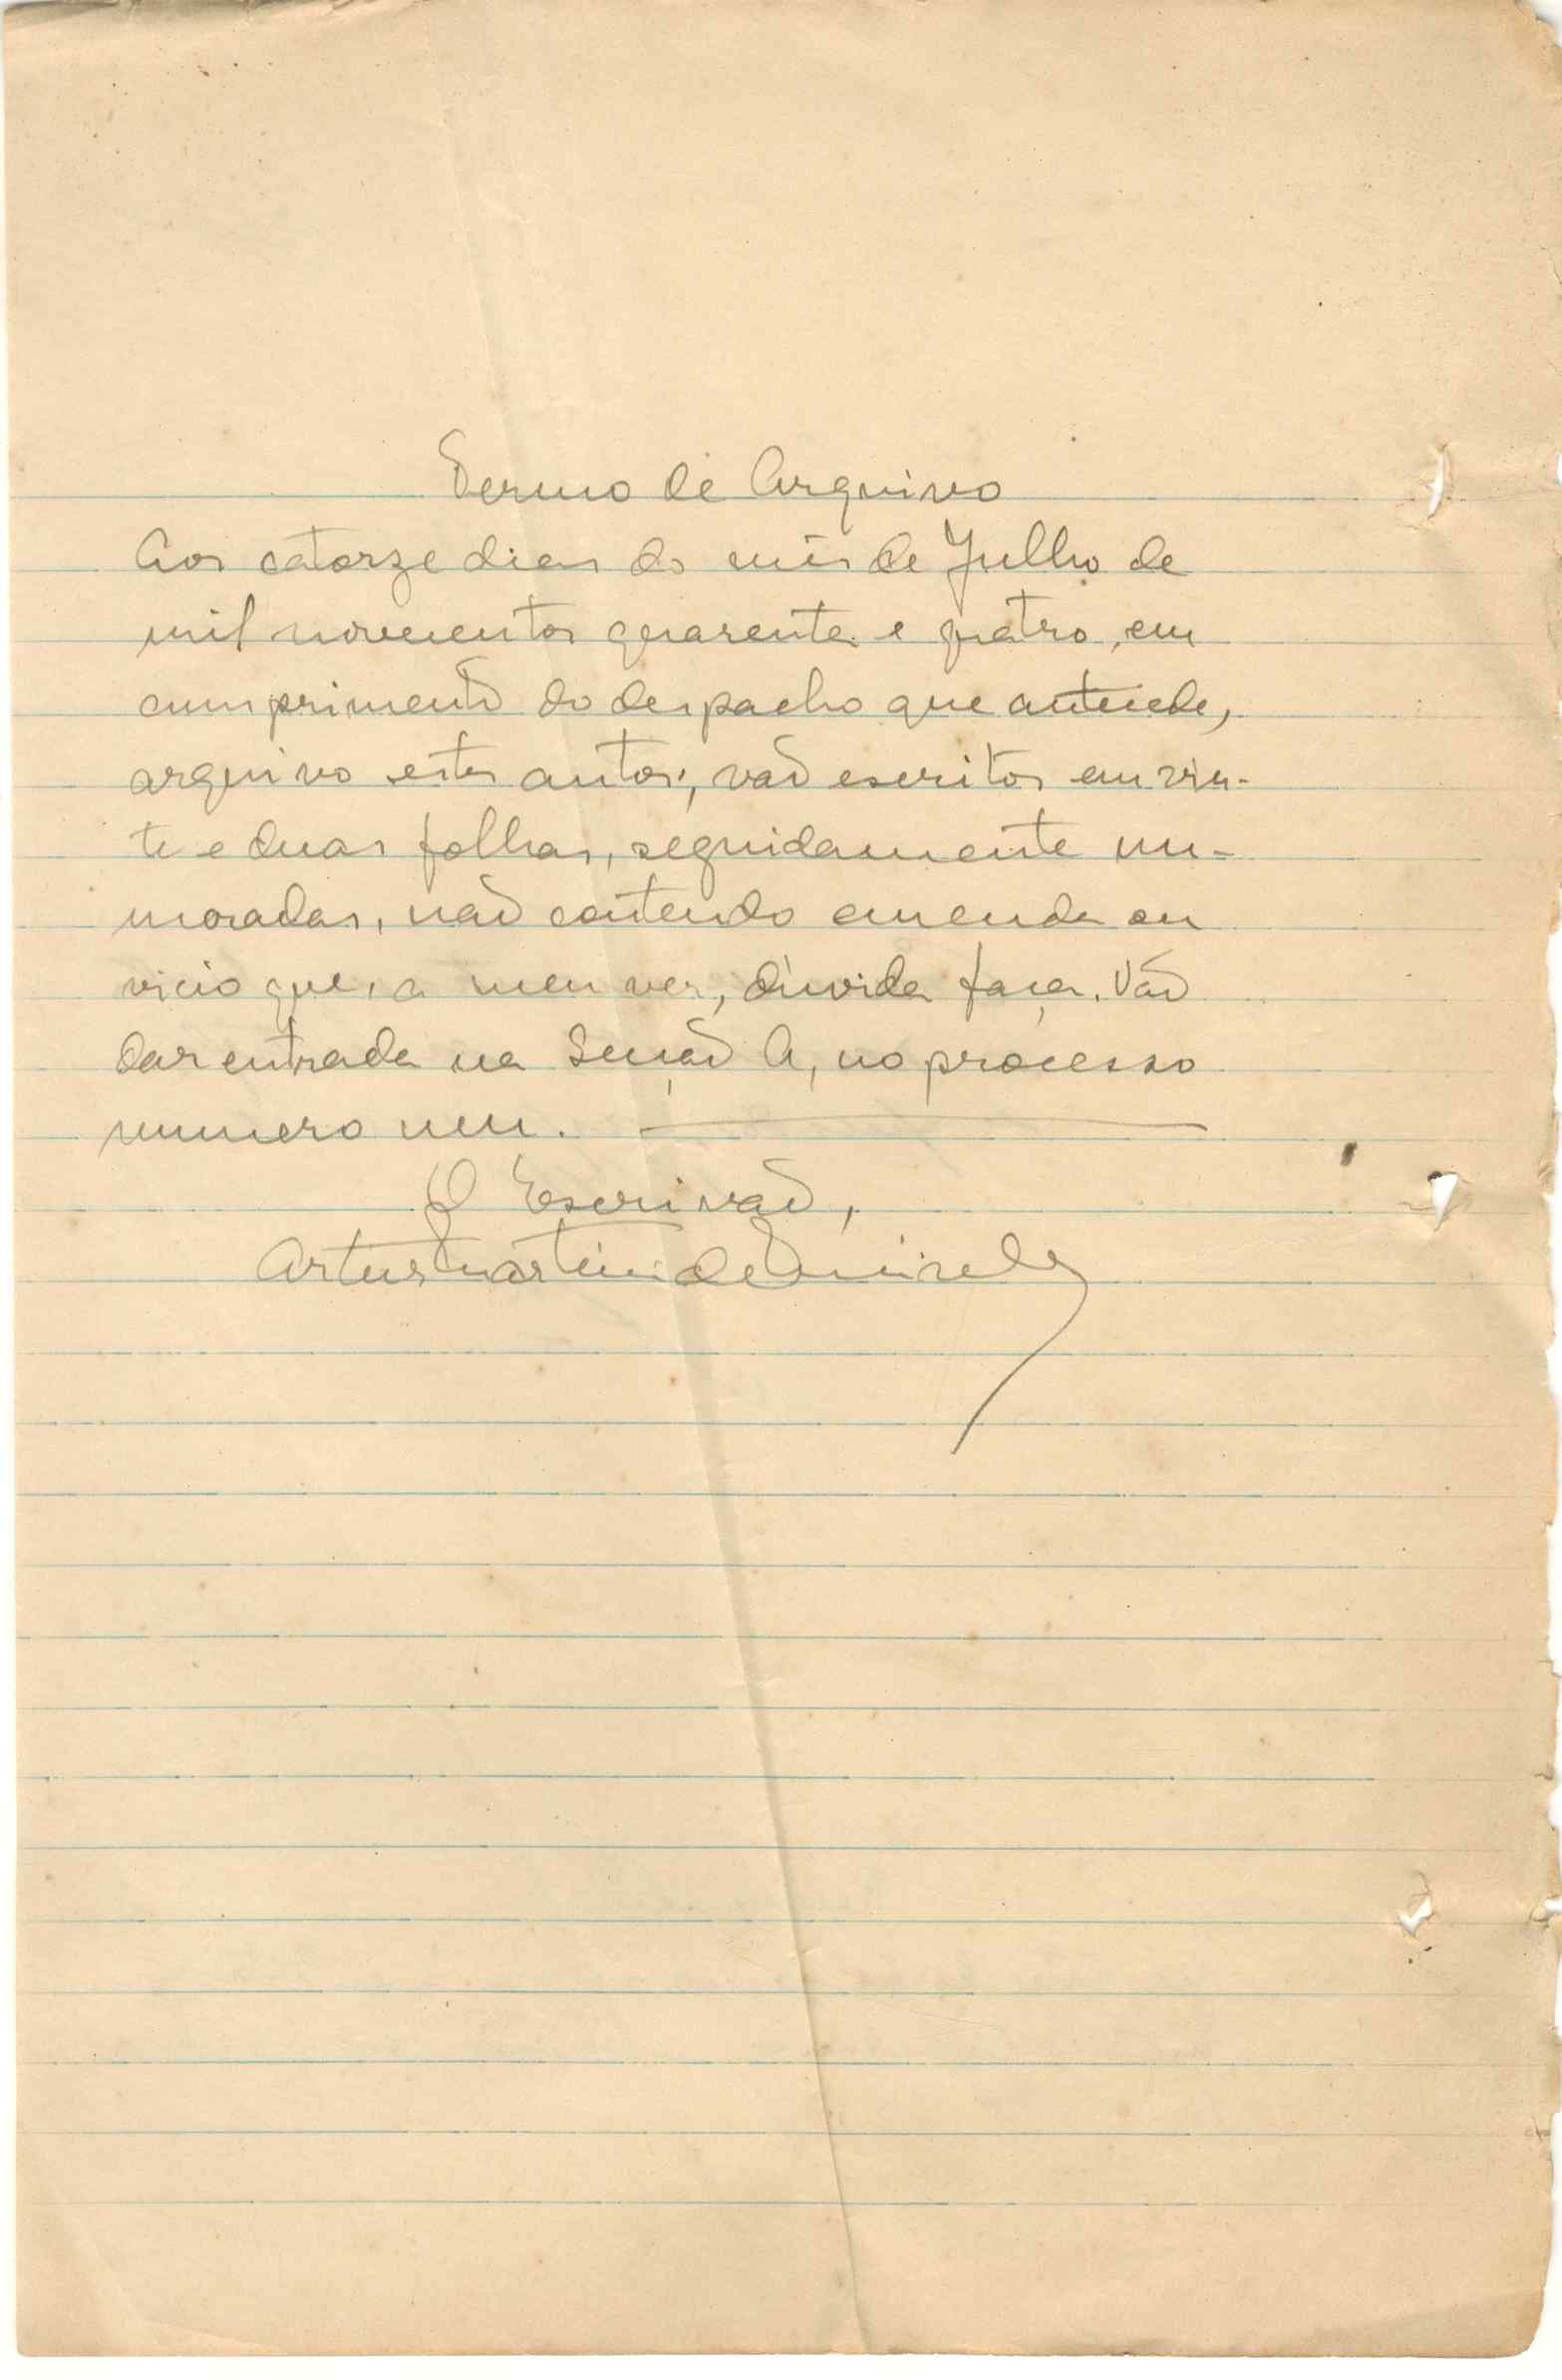 Termo de Arquivo
Aos catorze dias do mês de Julho de
mil novecentos quarenta e quatro, em
cumprimento do despacho que antecede,
arquivo estes autos; vão escritos em vin-
te e duas folhas, seguidamente nu-
moradas, não contendo emenda ou
vicio que, a meu ver, dúvida faça. Vão
dar entrada na Secção A, no processo
numero um.
O Escrivão,
Artur Martins de